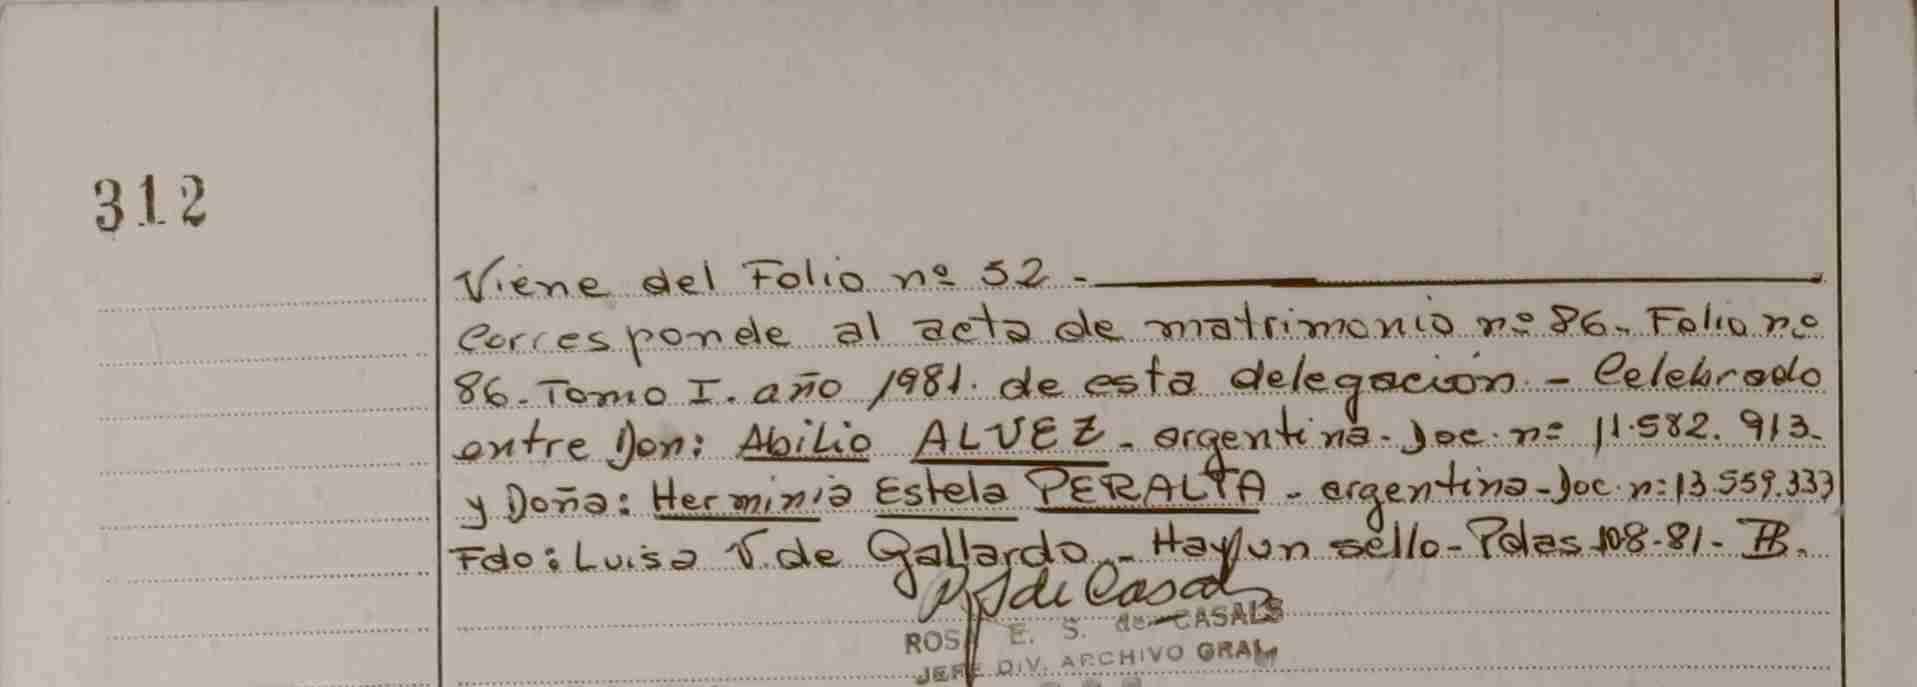 312
Viene del Folio nº 52 -
Corresponde al acta de matrimonio nº 86. Folio nº
86. Tomo I. año 1981. de esta delegación. - Celebrado
entre Don: Abilio ALVEZ - argentina. Doc. nº 11.582.913.
y Doña: Herminia Estela PERALTA - argentina - Doc. nº: 13.559.333
Fdo: Luisa V. de Gallardo - Hay un sello - Pdas 108-81-
de Casals
ROS E. S. de CASALS
JEFE DIV. ARCHIVO GRAL